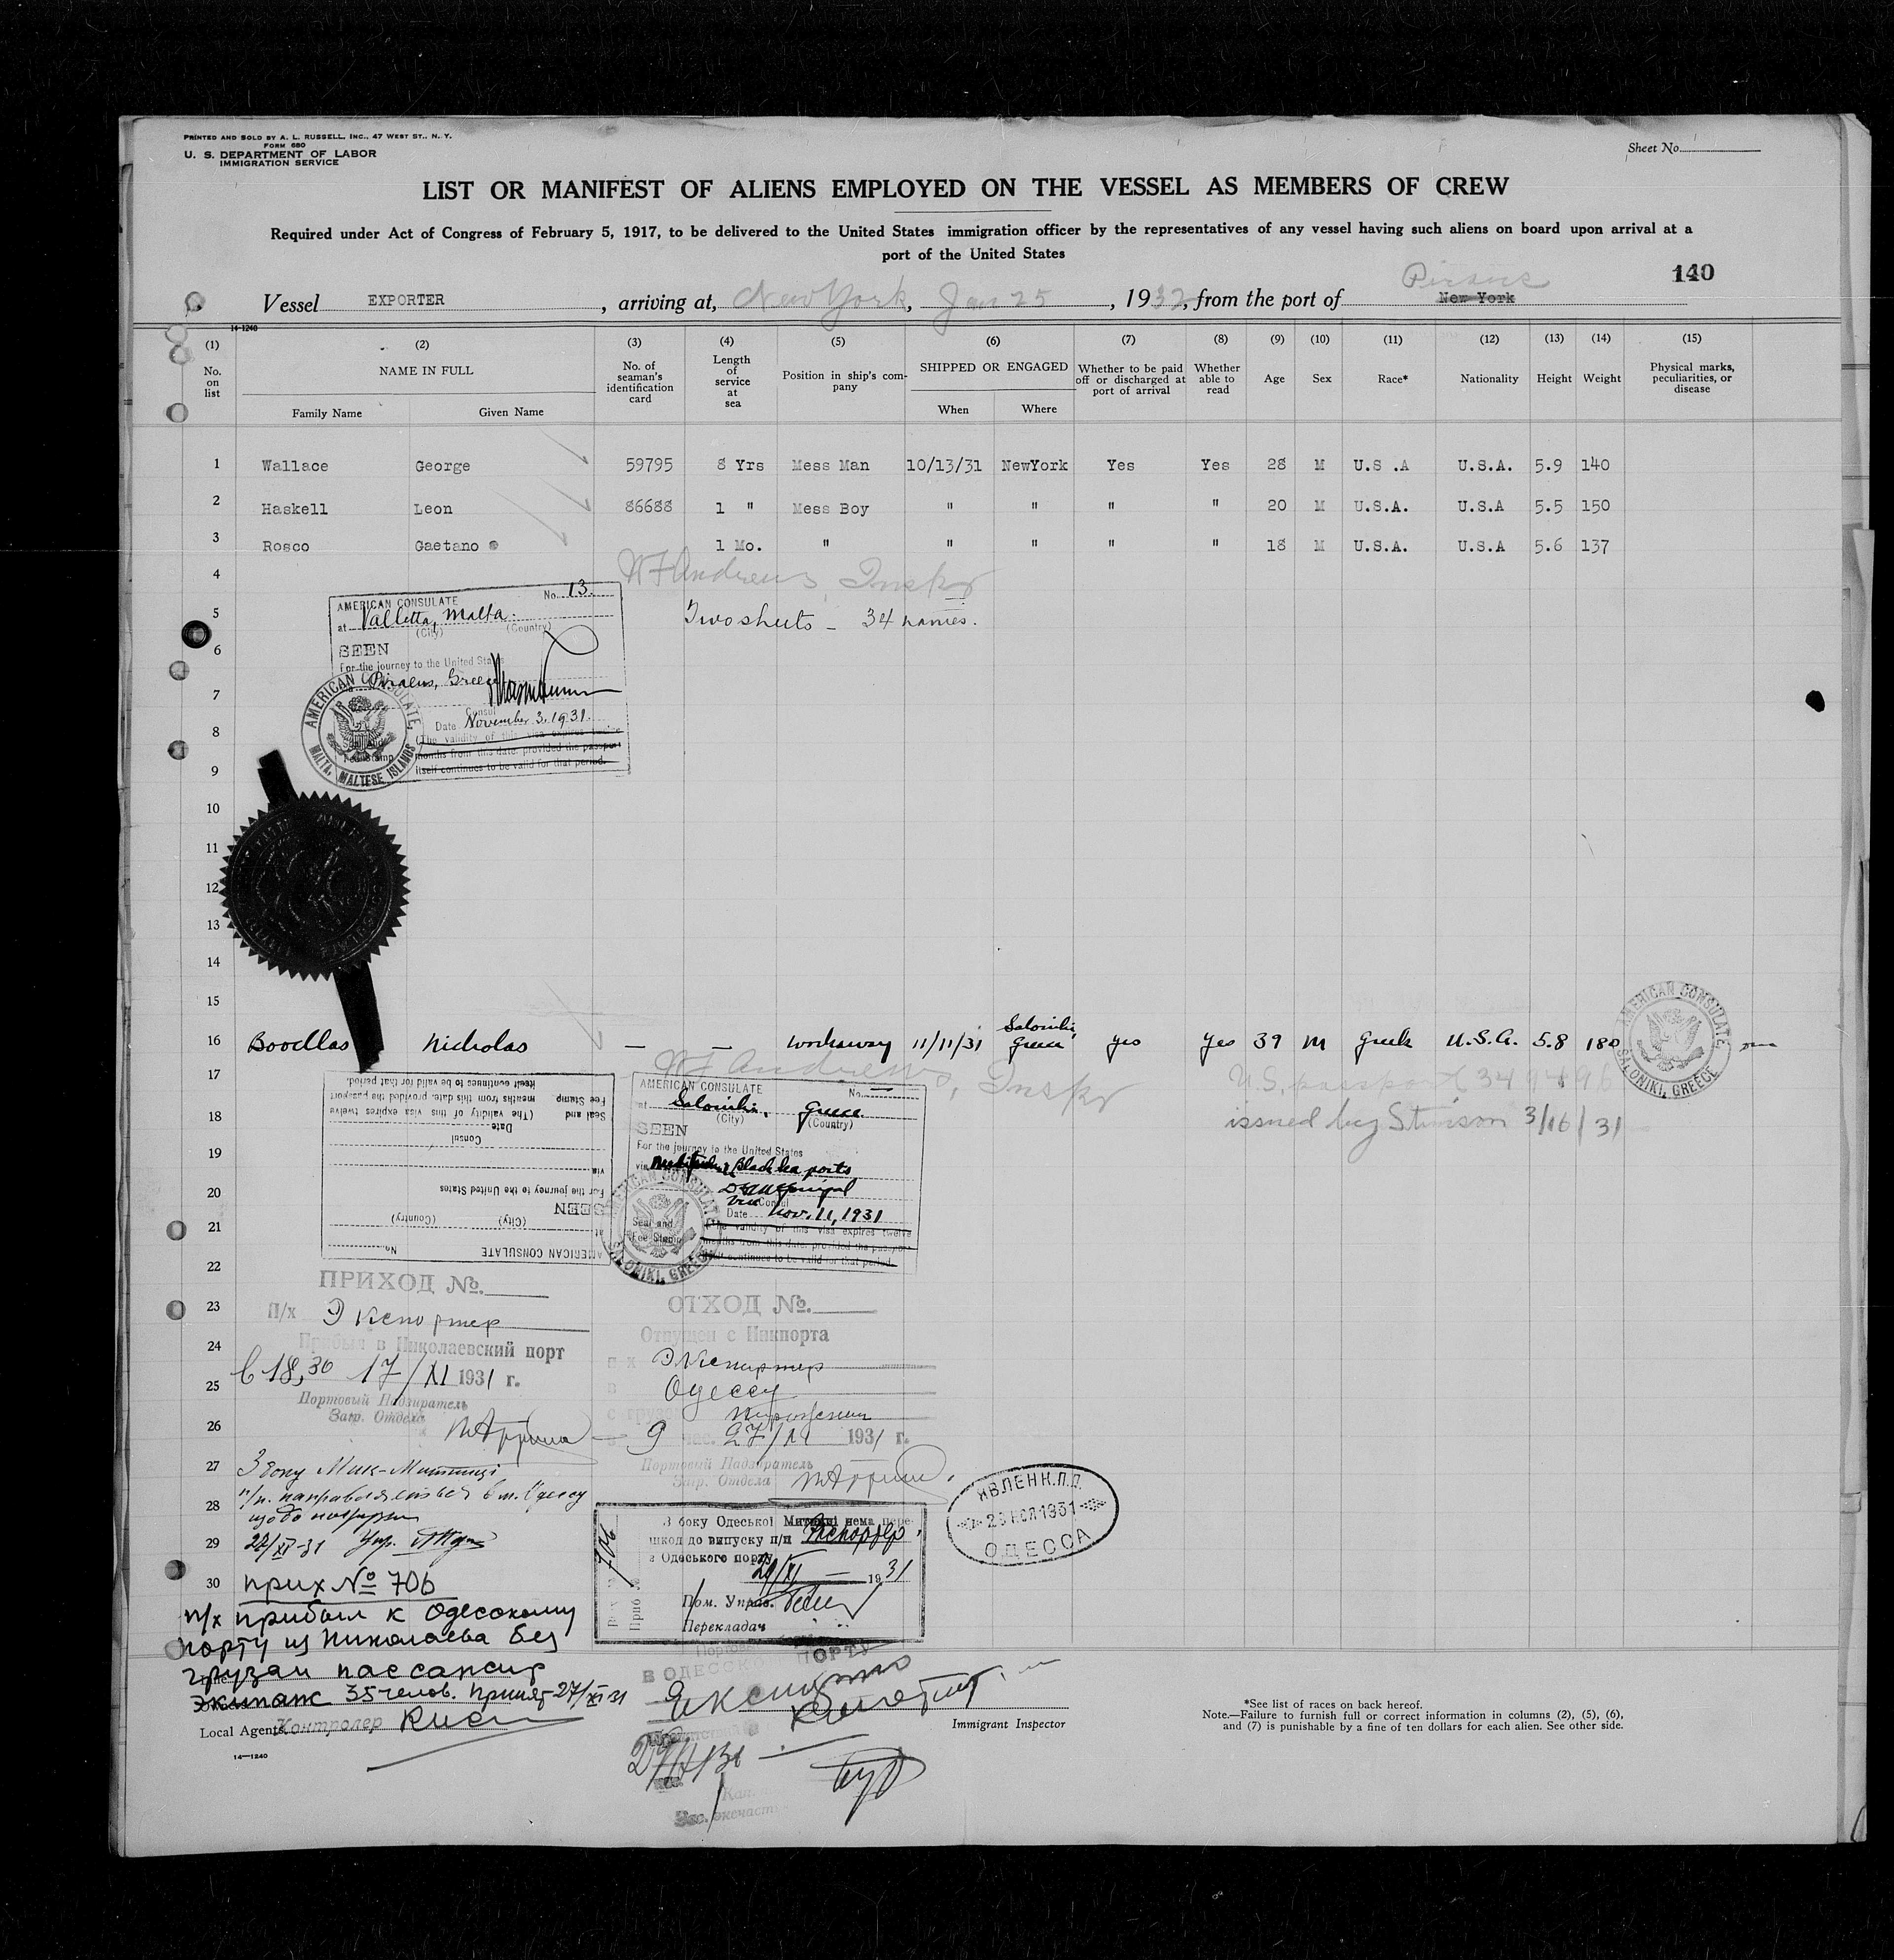 PRINTED AND SOLD BY A. L. RUSSELL, INC., 47 WEST ST., N. Y.
FORM 680
U. S. DEPARTMENT OF LABOR
IMMIGRATION SERVICE
Sheet No.
LIST OR MANIFEST OF ALIENS EMPLOYED ON THE VESSEL AS MEMBERS OF CREW
Required under Act of Congress of February 5, 1917, to be delivered to the United States immigration officer by the representatives of any vessel having such aliens on board upon arrival at a
port of the United States
140
Vessel EXPORTER, arriving at, New York, Jan 25, 1932, from the port of Piraeus New York
14-1240
(1) (2) (3) (4) (5) (6) (7) (8) (9) (10) (11) (12) (13) (14) (15)
No. on list
NAME IN FULL
Family Name Given Name
No. of seaman's identification card
Length of service at sea
Position in ship's company
SHIPPED OR ENGAGED
When Where
Whether to be paid off or discharged at port of arrival
Whether able to read
Age
Sex
Race*
Nationality
Height
Weight
Physical marks, peculiarities, or disease
1 Wallace George 59795 8 Yrs Mess Man 10/13/31 NewYork Yes Yes 28 M U.S .A U.S.A. 5.9 140
2 Haskell Leon 86688 1 " Mess Boy " " " " 20 M U.S.A. U.S.A 5.5 150
3 Rosco Gaetano 1 Mo. " " " " " 18 M U.S.A. U.S.A 5.6 137
4 W F Andrews, Inspr
5 Two sheets - 34 names.
AMERICAN CONSULATE No. 13.
at Valletta, Malta.
(City) (Country)
SEEN
For the journey to the United States
Piraeus, Greece
Consul
Date November 3. 1931.
(The validity of this visa expires twelve
months from this date, provided the passport
itself continues to be valid for that period.
AMERICAN CONSULATE, MALTA, MALTESE ISLANDS
6
7
8
9
10
11
12
13
14
15
16 Boodlas Nicholas — — workaway 11/11/31 Saloniki, Greece yes yes 39 M Greek U.S.A. 5.8 180
AMERICAN CONSULATE SALONIKI, GREECE
17 W F Andrews, Inspr
U.S. passport 349496
issued by Stimson 3/16/31
AMERICAN CONSULATE No.
at
(City) (Country)
SEEN
For the journey to the United States
via
Consul
Date
Seal and Fee Stamp
(The validity of this visa expires twelve
months from this date, provided the passport
itself continues to be valid for that period.
AMERICAN CONSULATE No.
at Saloniki, Greece
(City) (Country)
SEEN
For the journey to the United States
via Black Sea ports
Vice Consul
Date Nov. 11, 1931
Seal and Fee Stamp
(The validity of this visa expires twelve
months from this date, provided the passport
itself continues to be valid for that period.
AMERICAN CONSULATE SALONIKI, GREECE
18
19
20
21
22
23
24
25
26
27
28
29
30
ПРИХОД №.
П/х Экспортер
Прибыл в Николаевский порт
в 18,30 17/XI 1931 г.
Портовый Надзиратель
Загр. Отдела
ОТХОД №.
Отпущен с Никпорта
п-х Экспортер
в Одессу
9 час. 27/XI 1931 г.
Портовый Надзиратель
Загр. Отдела
З боку
22/XI-31
З боку Одеської Митниці нема пере-
шкод до випуску п/п Экспортер
з Одеського порту
1931
Пом. Управ.
Перекладач
706
ЯВЛЕН К.П.П.
ОДЕССА
прих № 706
п/х прибыл к Одесскому
порту из Николаева без
груза и пассажир
Экипаж 35 челов. Принят 27/XI 31
Local Agents Контролер
В ОДЕССКОМ ПОРТУ
Immigrant Inspector
14—1240
*See list of races on back hereof.
Note.—Failure to furnish full or correct information in columns (2), (5), (6),
and (7) is punishable by a fine of ten dollars for each alien. See other side.